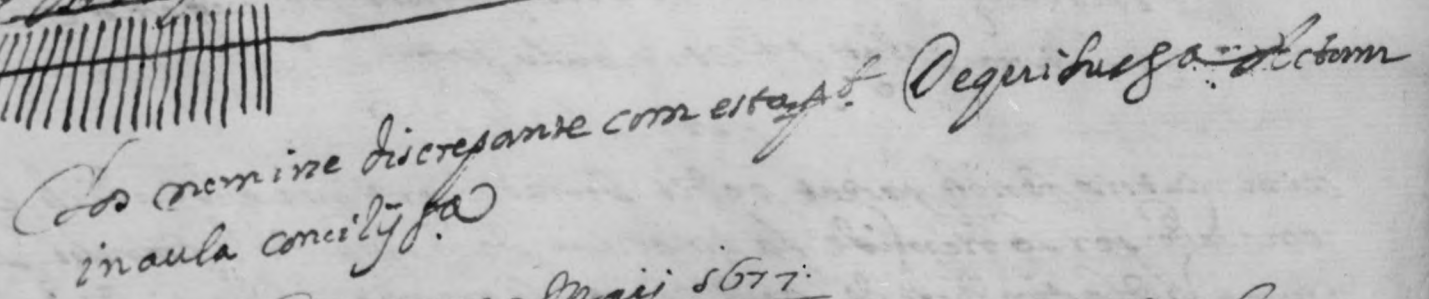 Tos nemine discrepante com esta De quibus &a Actum
in aula concilÿ &a
Maii 1677.